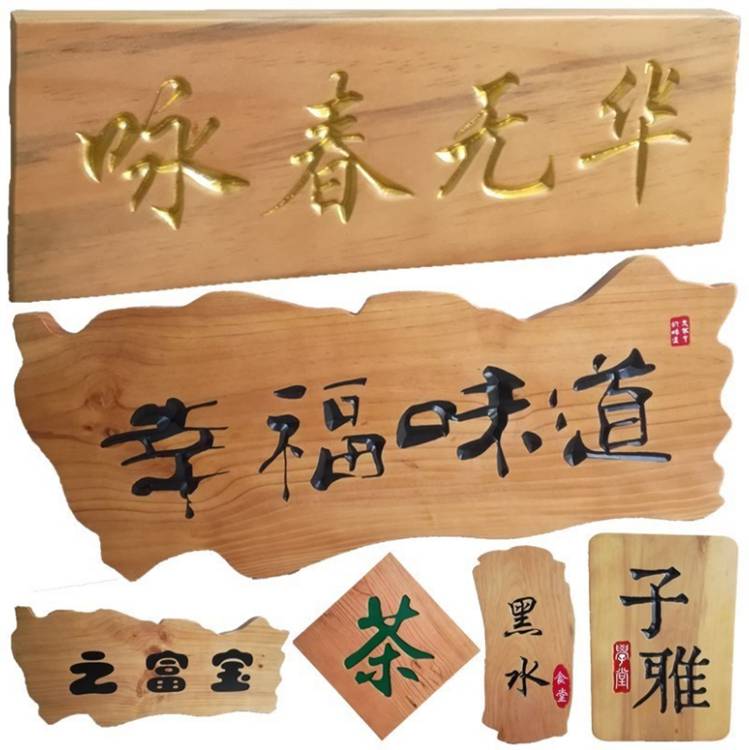 咏春无华
幸福味道
之富宝
茶
黑水
食堂
子雅
學堂